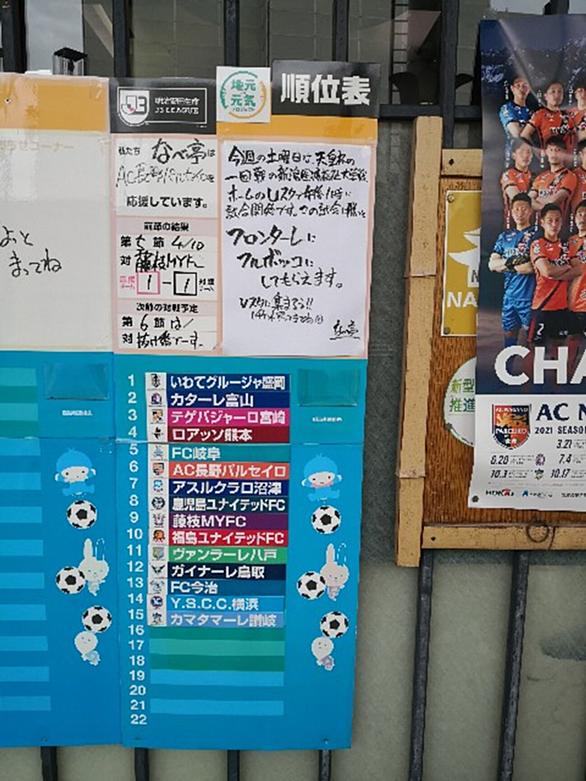 よっと
まってね
明治安田生命
J3 LEAGUE
私たち なべ亭は
AC長野パルセイロを
応援しています。
前節の結果
第 節 4/10
対 藤枝MYFC
1 - 1
次節の対戦予定
第 6 節は/
対
地元
元気
順位表
今週の土曜日は、天皇杯の
一回戦の新潟医療福祉大学戦
ホームのUスタ 午後1時に
試合開始です。この試合に勝つと
フロンターレに
フルボッコに
してもらえます。
Uスタに集まろう!!
1 いわてグルージャ盛岡
2 カターレ富山
3 テゲバジャーロ宮崎
4 ロアッソ熊本
5 FC岐阜
6 AC長野パルセイロ
7 アスルクラロ沼津
8 鹿児島ユナイテッドFC
9 藤枝MYFC
10 福島ユナイテッドFC
11 ヴァンラーレ八戸
12 ガイナーレ鳥取
13 FC今治
14 Y.S.C.C.横浜
15 カマタマーレ讃岐
16
17
18
19
20
21
22
NA
新型
推進
CHA
AC N
2021 SEASON
3.21
6.20
7.4
10.3
10.17